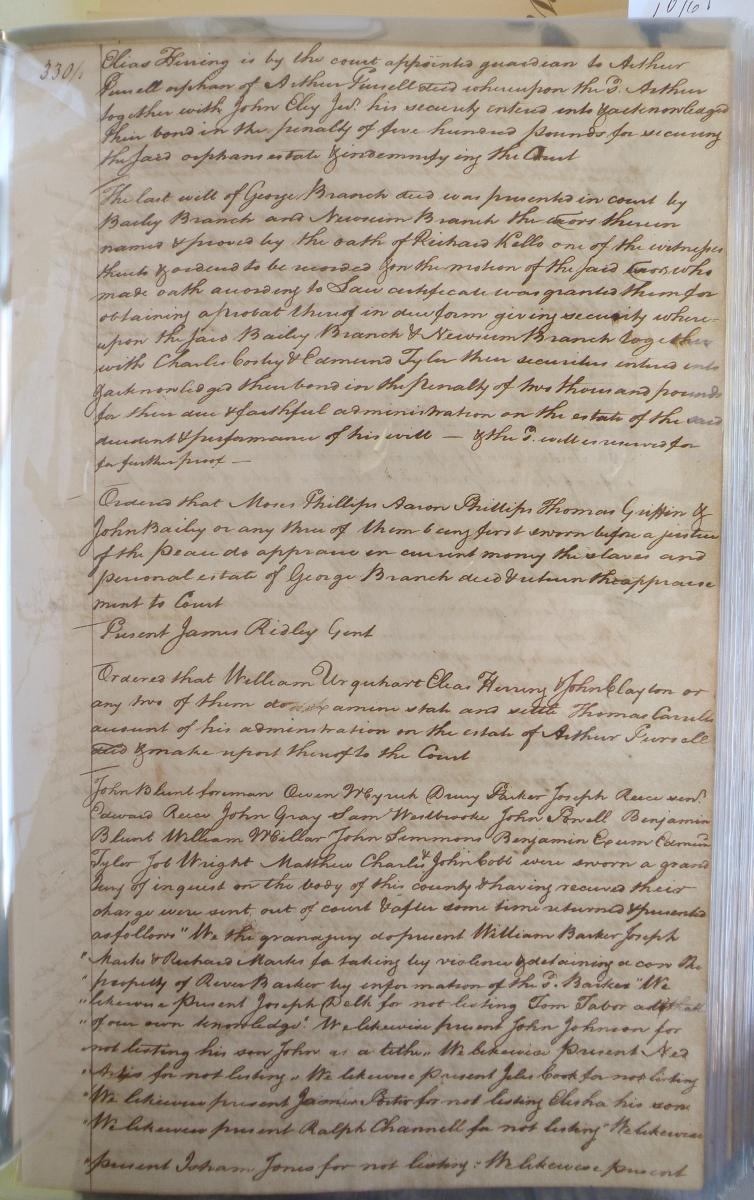 330/1
Elias Herring is by the court appointed guardian to Arthur
Pursell orphan of Arthur Pursell deed whereupon the sd. Arthur
together with John Eley Jur. his security entered into & acknowledged
their bond in the penalty of five hundred pounds for securing
the said orphans estate & indemnifying the Court
The last will of George Branch deed was presented in court by
Baily Branch and Newsum Branch the exors therein
named & proved by the oath of Richard Kello one of the witnesses
thereto & ordered to be recorded & on the motion of the said exors who
made oath according to Law certificate was granted them for
obtaining a probat thereof in due form giving security where-
upon the said Bailey Branch & Newsum Branch together
with Charles Cosby & Edmund Tyler their securities entered into
& acknowledged their bond in the penalty of two thousand pounds
for their due & faithful administration on the estate of the said
decedent & performance of his will — & the sd. will is reserved for
for further proof —
Ordered that Moses Phillips Aaron Phillips Thomas Griffin &
John Bailey or any three of them being first sworn before a justice
of the peace do appraise in current money the slaves and
personal estate of George Branch deed & return the appraise
ment to Court
Present James Ridley Gent
Ordered that William Urquhart Elias Herring & John Clayton or
any two of them do examine state and settle Thomas
account of his administration on the estate of Arthur Pursell
deed & make report thereof to the Court
John Blunt foreman Owen Drury Parker Joseph Reece senr.
Edward Reece John Gray Sam Westbrooke John Powell Benjamin
Blunt William John Simmons Benjamin Exum Edmund
Tyler Job Wright Matthew Charles & John Cobb were sworn a grand
Jury of inquest on the body of this county & having received their
charge were sent out of court & after some time returned & presented
as follows "We the grand jury do present William Barker Joseph
"Marks & Richard Marks for taking by violence & detaining a cow the
"property of River Barker by information of the sd. Barker "We
"likewise present Joseph Delk for not listing Tom Tabor
"of our own knowledge" We likewise present John Johnson for
not listing his son John as a tithe " We likewise present Ned
"Artis for not listing " We likewise present Jiles Cook for not listing
"We likewise present James Porter for not listing Elisha his son
"We likewise present Ralph Channell for not listing "We likewise
"present Isham Jones for not listing "We likewise present